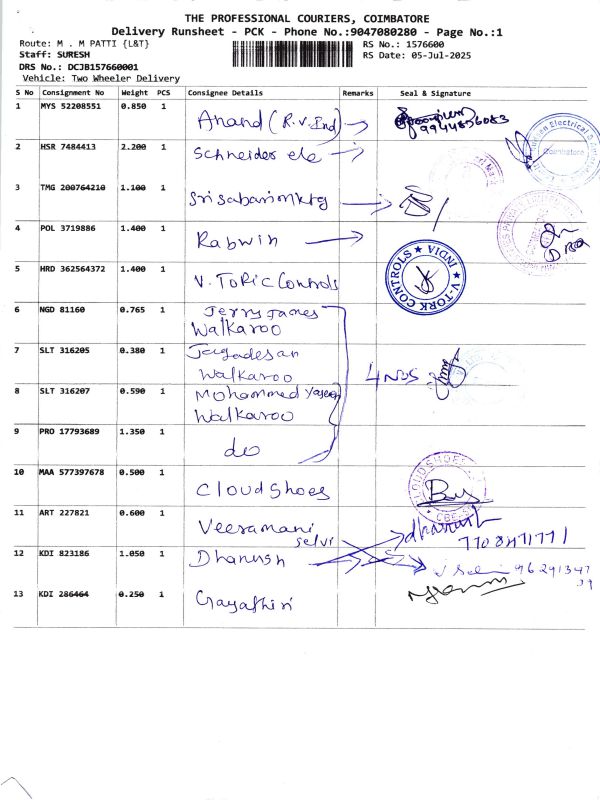 THE PROFESSIONAL COURIERS, COIMBATORE
Delivery Runsheet - PCK - Phone No.:9047080280 - Page No.:1
Route: M . M PATTI {L&T} RS No.: 1576600
Staff: SURESH RS Date: 05-Jul-2025
DRS No.: DCJB157660001
Vehicle: Two Wheeler Delivery
S No Consignment No Weight PCS Consignee Details Remarks Seal & Signature
1 MYS 52208551 0.850 1 Anand (R.V. Ind) 9944856083
2 HSR 7484413 2.200 1 Schneider ele
Coimbatore
3 TMG 200764210 1.100 1
4 POL 3719886 1.400 1 Rabwin
5 HRD 362564372 1.400 1 V. Toric Controls
V-TORK CONTROLS ★ INDIA ★
6 NGD 81160 0.765 1 Jerry James
Walkaroo
7 SLT 316205 0.380 1 Jagadesan
Walkaroo 4 NOS
8 SLT 316207 0.590 1 Mohammed Yaseen
Walkaroo
9 PRO 17793689 1.350 1 do
10 MAA 577397678 0.500 1 Cloud Shoes
CLOUD SHOES
11 ART 227821 0.600 1 Veeramani
selvi dhanush
7708471771
12 KDI 823186 1.050 1 Dhanush
13 KDI 286464 0.250 1 Gayathiri